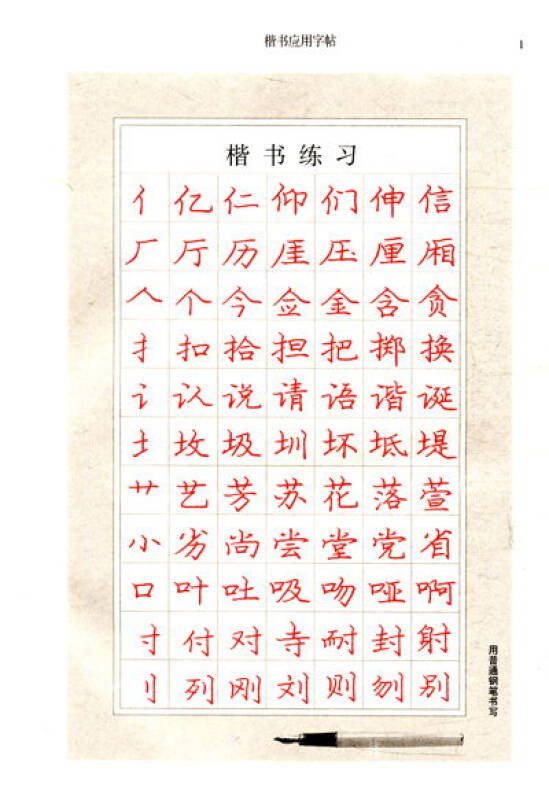 楷书应用字帖
1
楷书练习
亻亿仁仰们伸信
厂厅历厓压厘厢
𠆢个今佥金含贪
扌扣拾担把掷换
讠认说请语谐诞
土坟圾圳坏坻堤
艹艺芳苏花落萱
小劣尚尝堂党省
口叶吐吸吻哑啊
寸付对寺耐封射
刂列刚刘则刎别
用普通钢笔书写